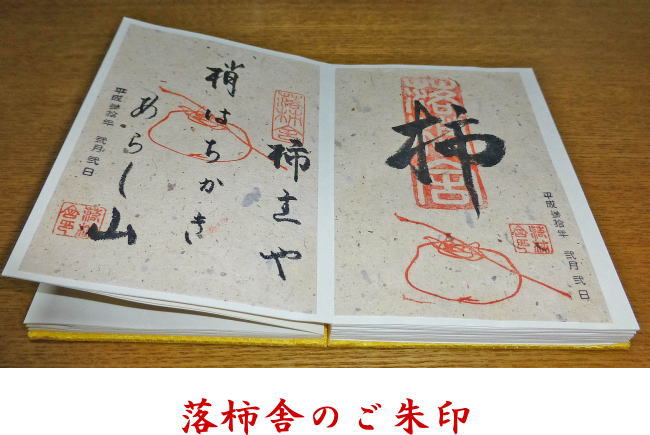 落柿舎
柿
平成
拾年 弐月弐日
落柿舎
柿主や
梢はちかき
あらし山
平成
拾年 弐月弐日
落柿舎のご朱印